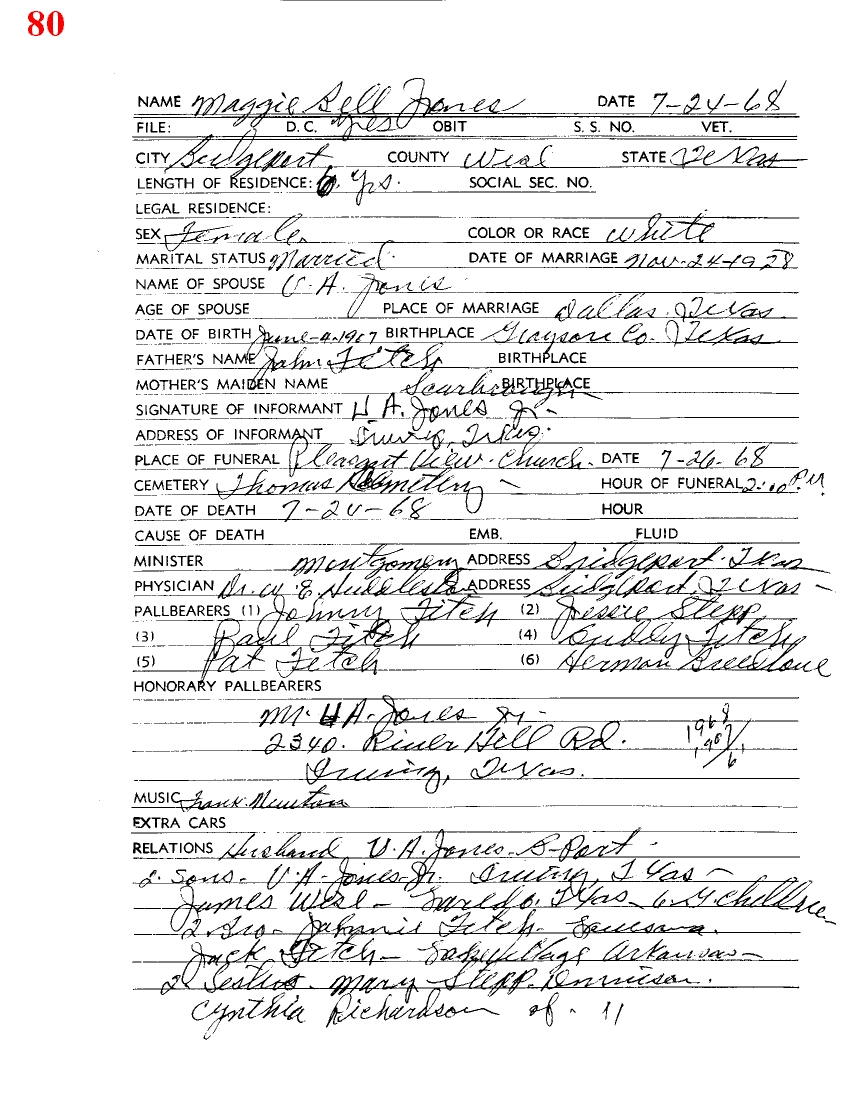 80
NAME Maggie Bell Jones DATE 7-24-68
FILE: D.C. yes OBIT S. S. NO. VET.
CITY Bridgeport COUNTY Wise STATE Texas
LENGTH OF RESIDENCE: 6 yrs. SOCIAL SEC. NO.
LEGAL RESIDENCE:
SEX Female COLOR OR RACE White
MARITAL STATUS Married DATE OF MARRIAGE Nov-24-1928
NAME OF SPOUSE U. A. Jones
AGE OF SPOUSE PLACE OF MARRIAGE Dallas, Texas
DATE OF BIRTH June-4-1907 BIRTHPLACE Grayson Co. Texas
FATHER'S NAME John Fitch BIRTHPLACE
MOTHER'S MAIDEN NAME BIRTHPLACE
SIGNATURE OF INFORMANT U A. Jones Jr-
ADDRESS OF INFORMANT Irving, Texas.
PLACE OF FUNERAL Pleasant View. Church. DATE 7-26-68
CEMETERY Thomas Cemetery - HOUR OF FUNERAL 2:00 P.M.
DATE OF DEATH 7-24-68 HOUR
CAUSE OF DEATH EMB. FLUID
MINISTER Montgomery ADDRESS Bridgeport. Texas
PHYSICIAN Dr. ADDRESS Bridgeport, Texas-
PALLBEARERS (1) Johnny Fitch (2) Jessie Stepp
(3) Paul Fitch (4) Buddy Fitch
(5) Pat Fitch (6) Herman
HONORARY PALLBEARERS
Mr. U A. Jones Jr-
2340. River Hill Rd. 1968
Irving, Texas. 1907
MUSIC Frank Newton
EXTRA CARS
RELATIONS Husband U. A. Jones- B-Port -
2. Sons- U. A- Jones-Jr. Irving, Texas -
James West- Laredo, Texas- 6. G. children
2 Bro- Johnnie Fitch-
Jack Fitch- Arkansas-
2 Sisters. Mary Stepp.
Cynthia Richardson of - 11